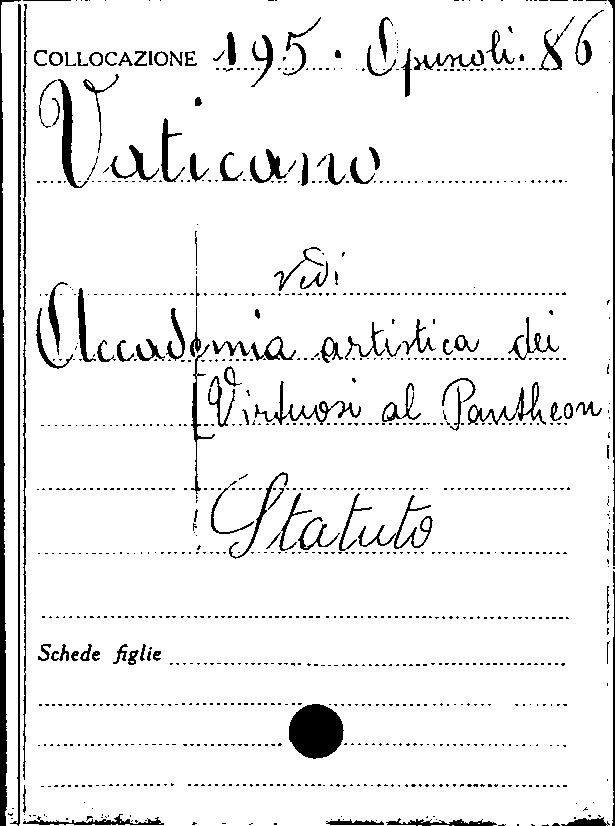 COLLOCAZIONE 195. Opuscoli. 86
Vaticano
vedi
Accademia artistica dei
[Virtuosi al Pantheon
Statuto
Schede figlie